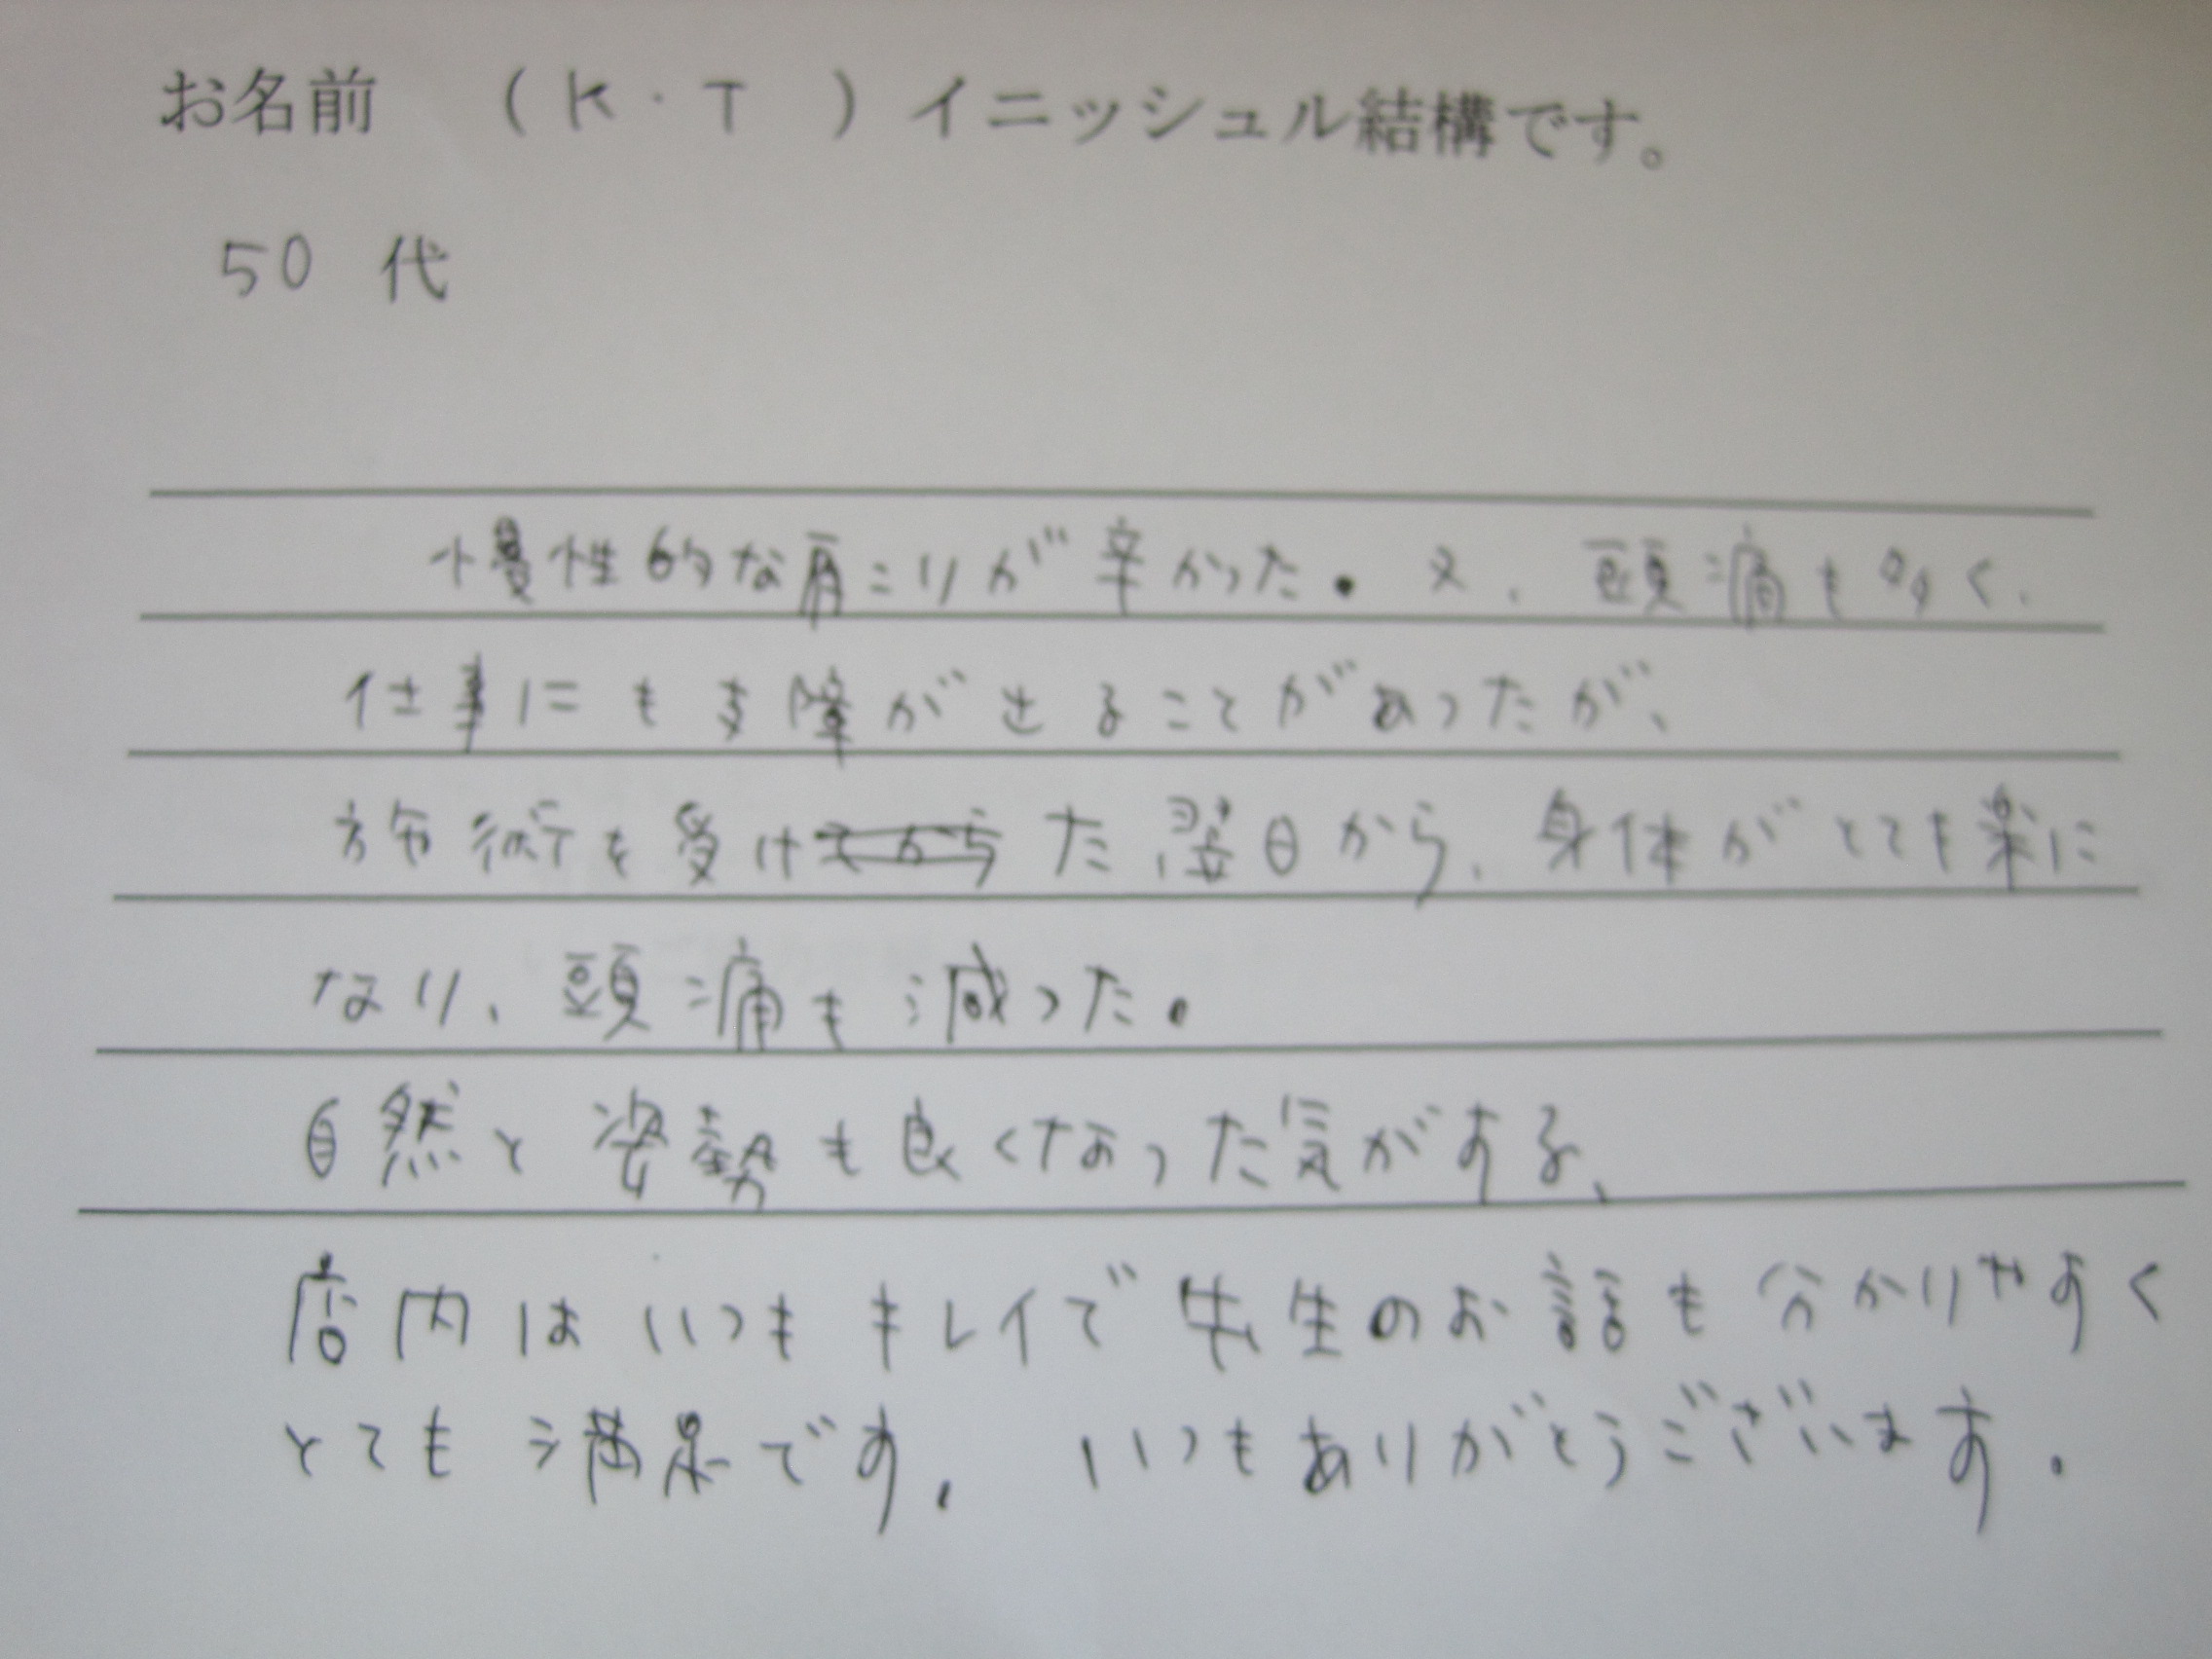 お名前 （ K・T ）イニッシュル結構です。
50 代
慢性的な肩こりが辛かった。又、頭痛も多く、
仕事にも支障が出ることがあったが、
施術を受けてからた翌日から、身体がとても楽に
なり、頭痛も減った。
自然と姿勢も良くなった気がする、
店内はいつもキレイで先生のお話も分かりやすく
とても満足です。いつもありがとうございます。